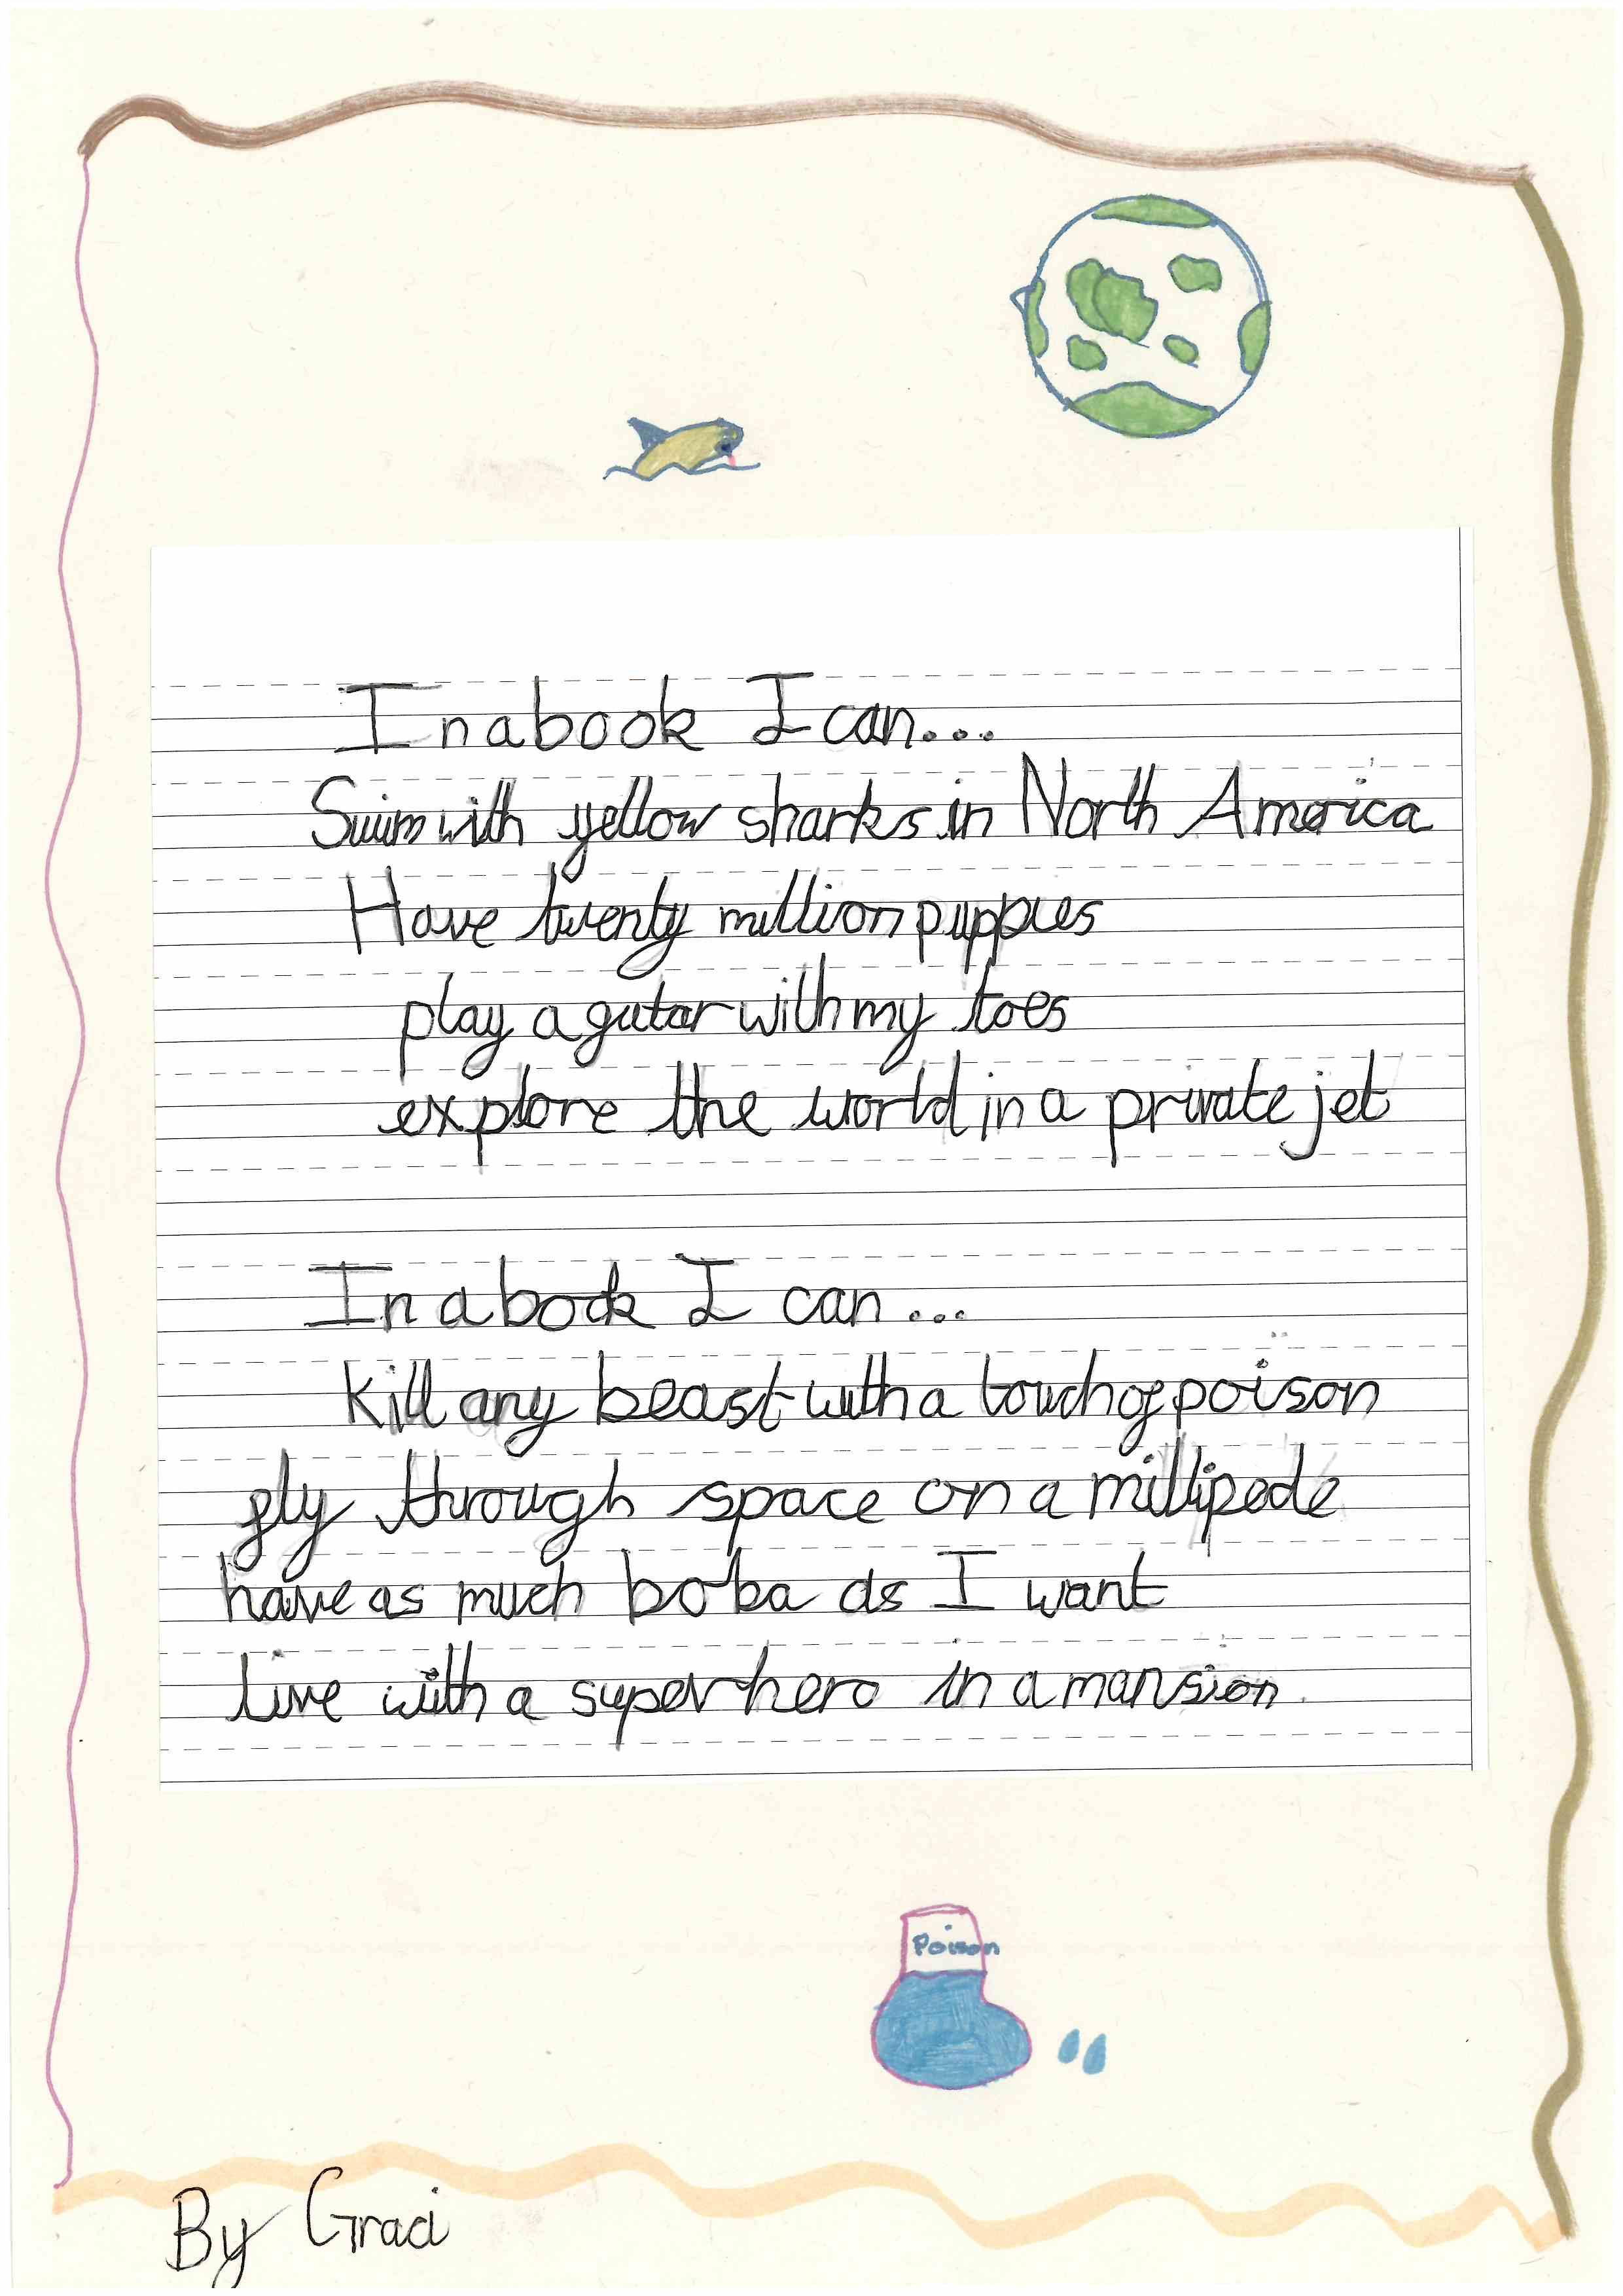 In a book I can...
Swim with yellow sharks in North America
Have twenty million puppies
play a gutar with my toes
explore the world in a private jet
In a book I can...
Kill any beast with a touch of poison
fly through space on a millipede
have as much boba as I want
live with a superhero in a mansion.
Poison
By Graci